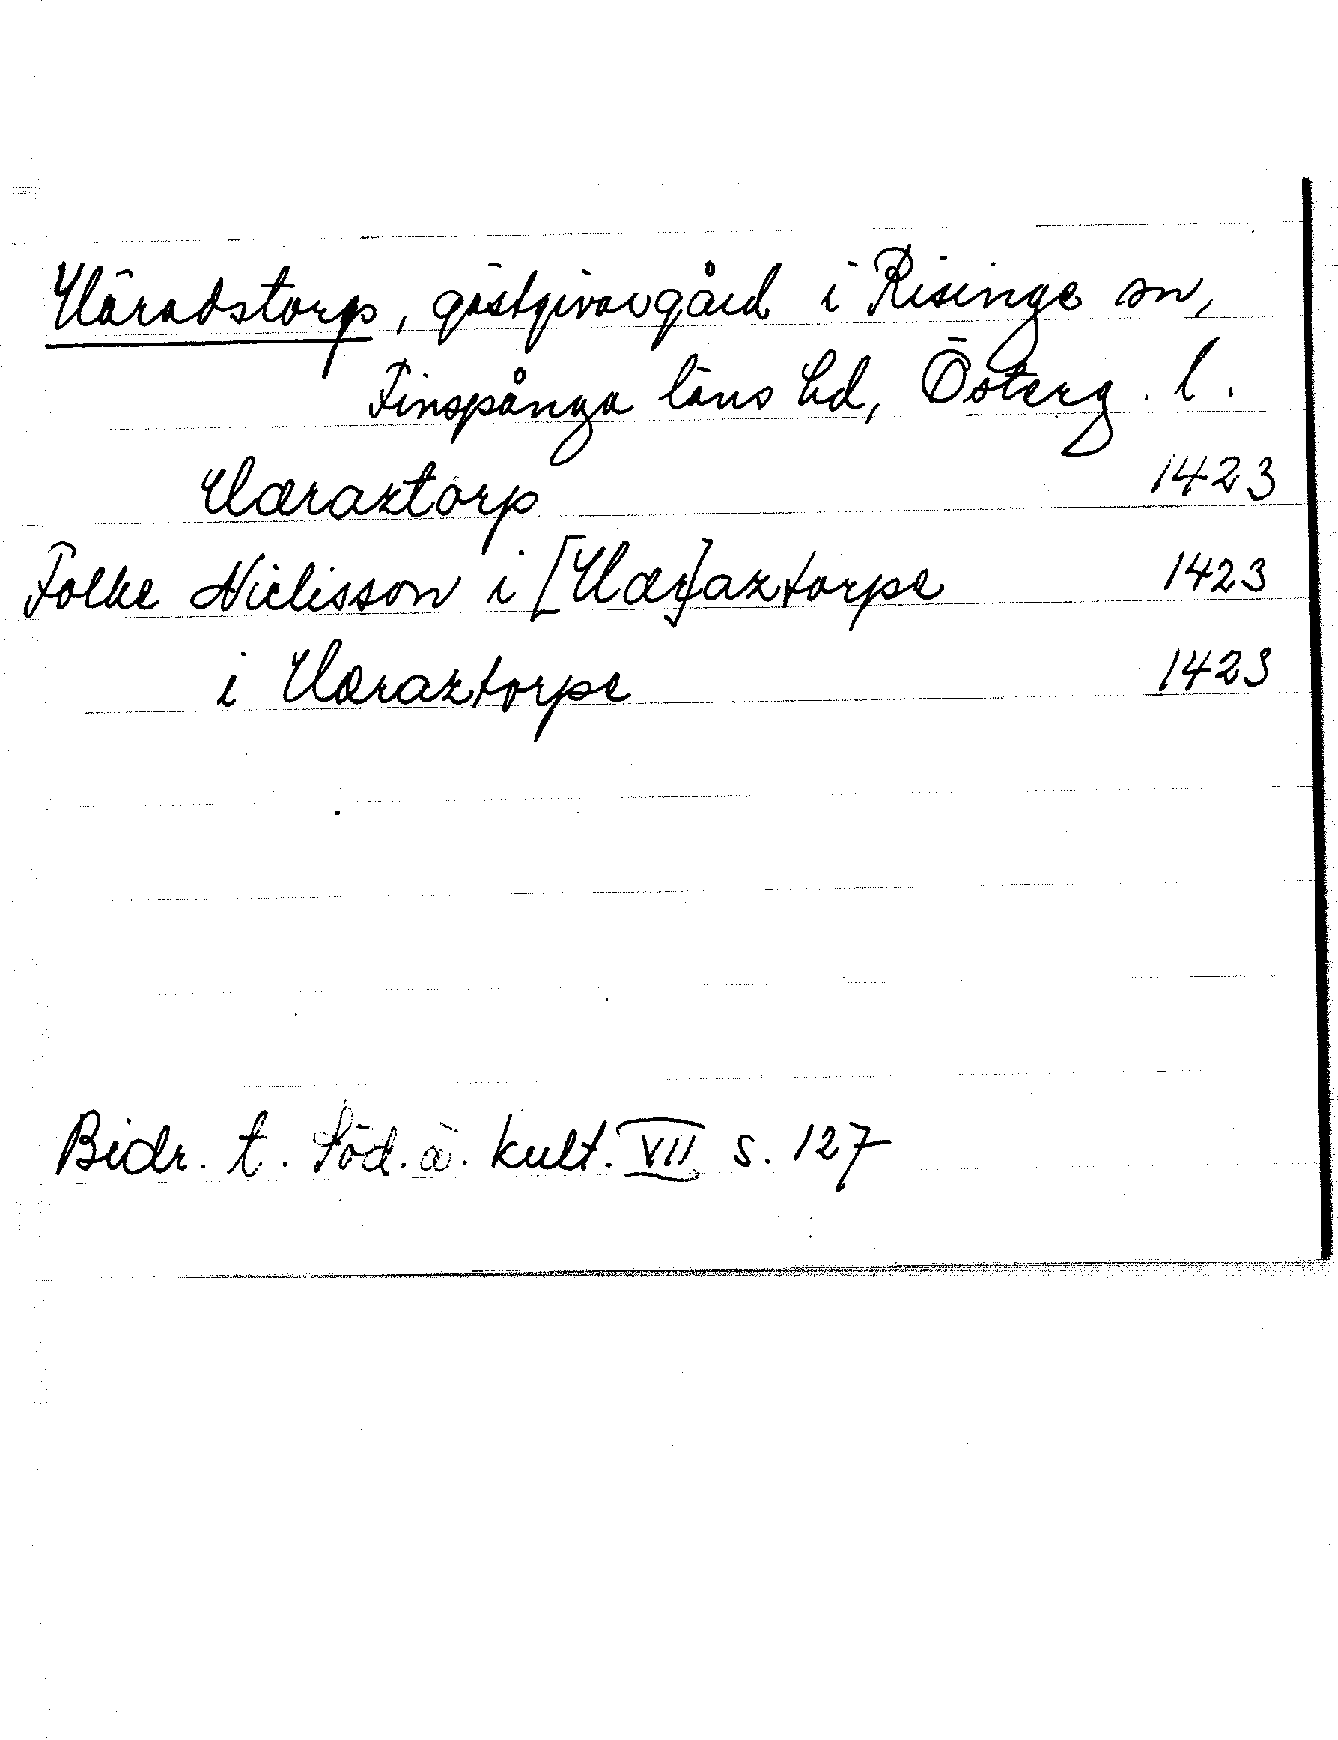 Häradstorp, gästgivaregård i Risinge sn,
Finspånga läns hd, Österg. l.
Hæraztorp 1423
Folke Nielisson i [Hær]aztorpe 1423
i Hæraztorpe 1423
Bidr. t. Söd. ä. kult. VII s. 127